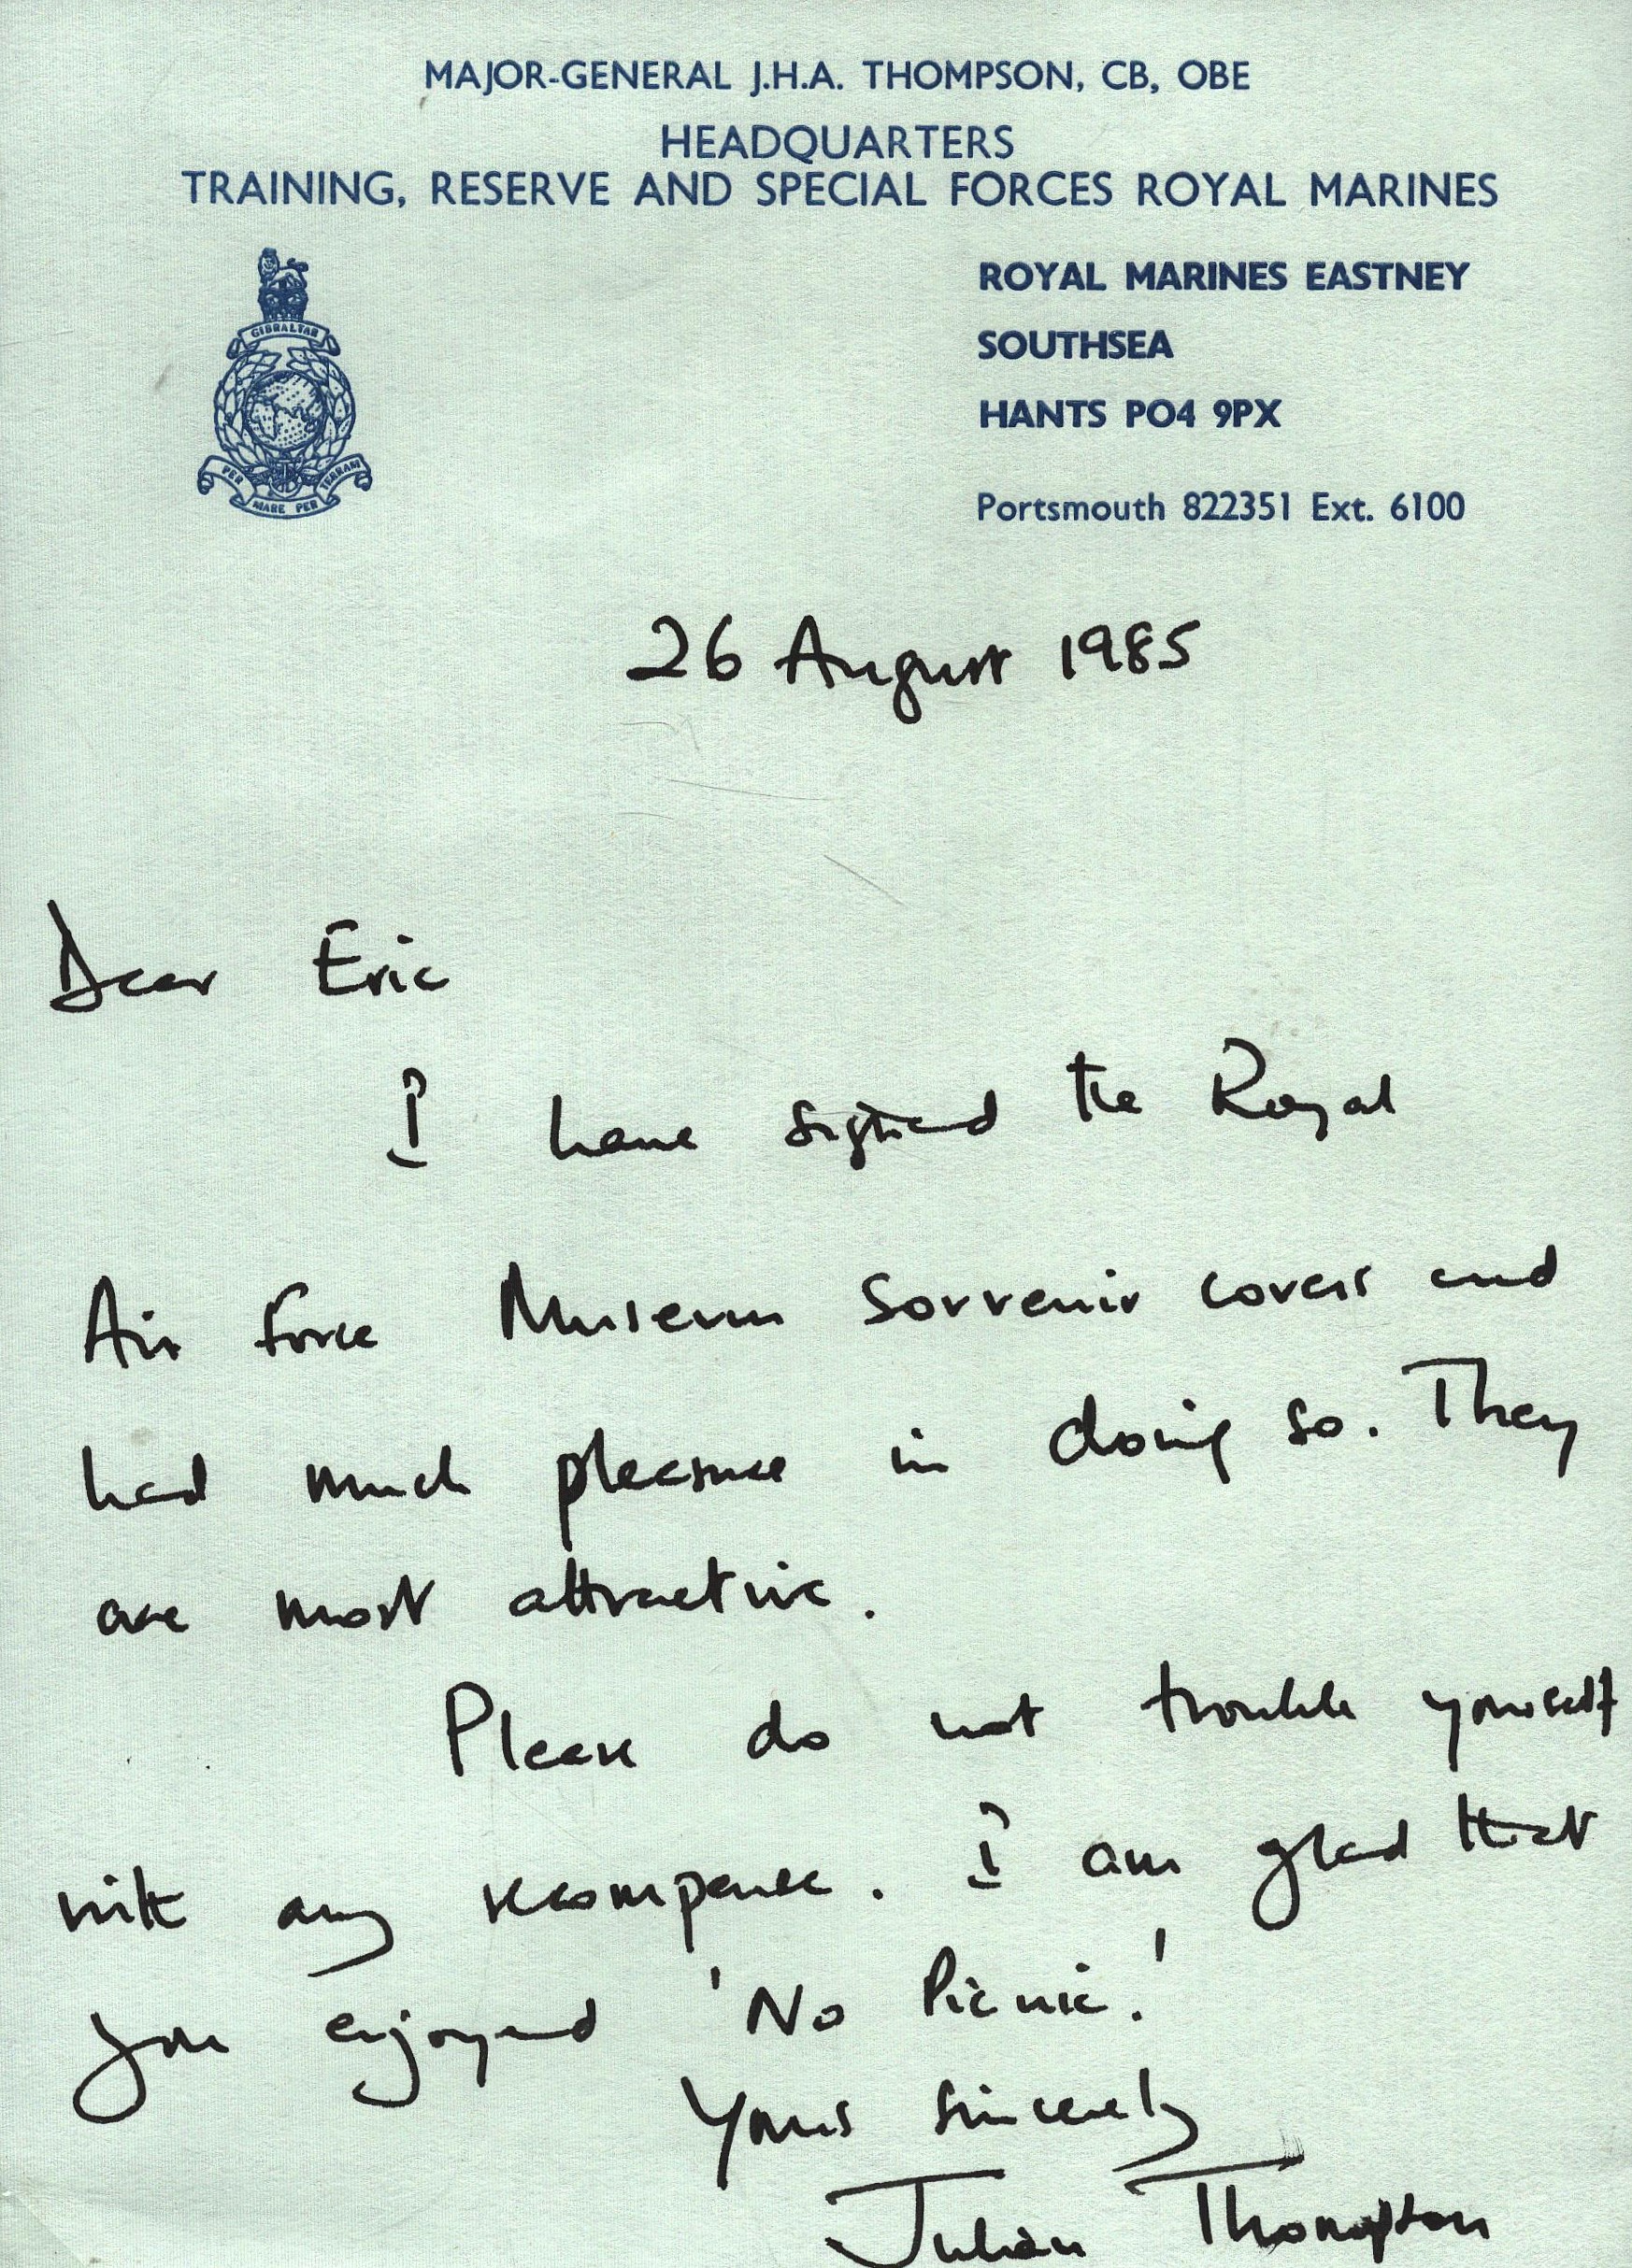 MAJOR-GENERAL J.H.A. THOMPSON, CB, OBE
HEADQUARTERS
TRAINING, RESERVE AND SPECIAL FORCES ROYAL MARINES
GIBRALTAR
PER MARE PER TERRAM
ROYAL MARINES EASTNEY
SOUTHSEA
HANTS PO4 9PX
Portsmouth 822351 Ext. 6100
26 August 1985
Dear Eric
I have signed the Royal
Air Force Museum Souvenir covers and
had much pleasure in doing so. They
are most attractive.
Please do not trouble yourself
with any recompense. I am glad that
you enjoyed 'No Picnic.'
Yours sincerely
Julian Thompson